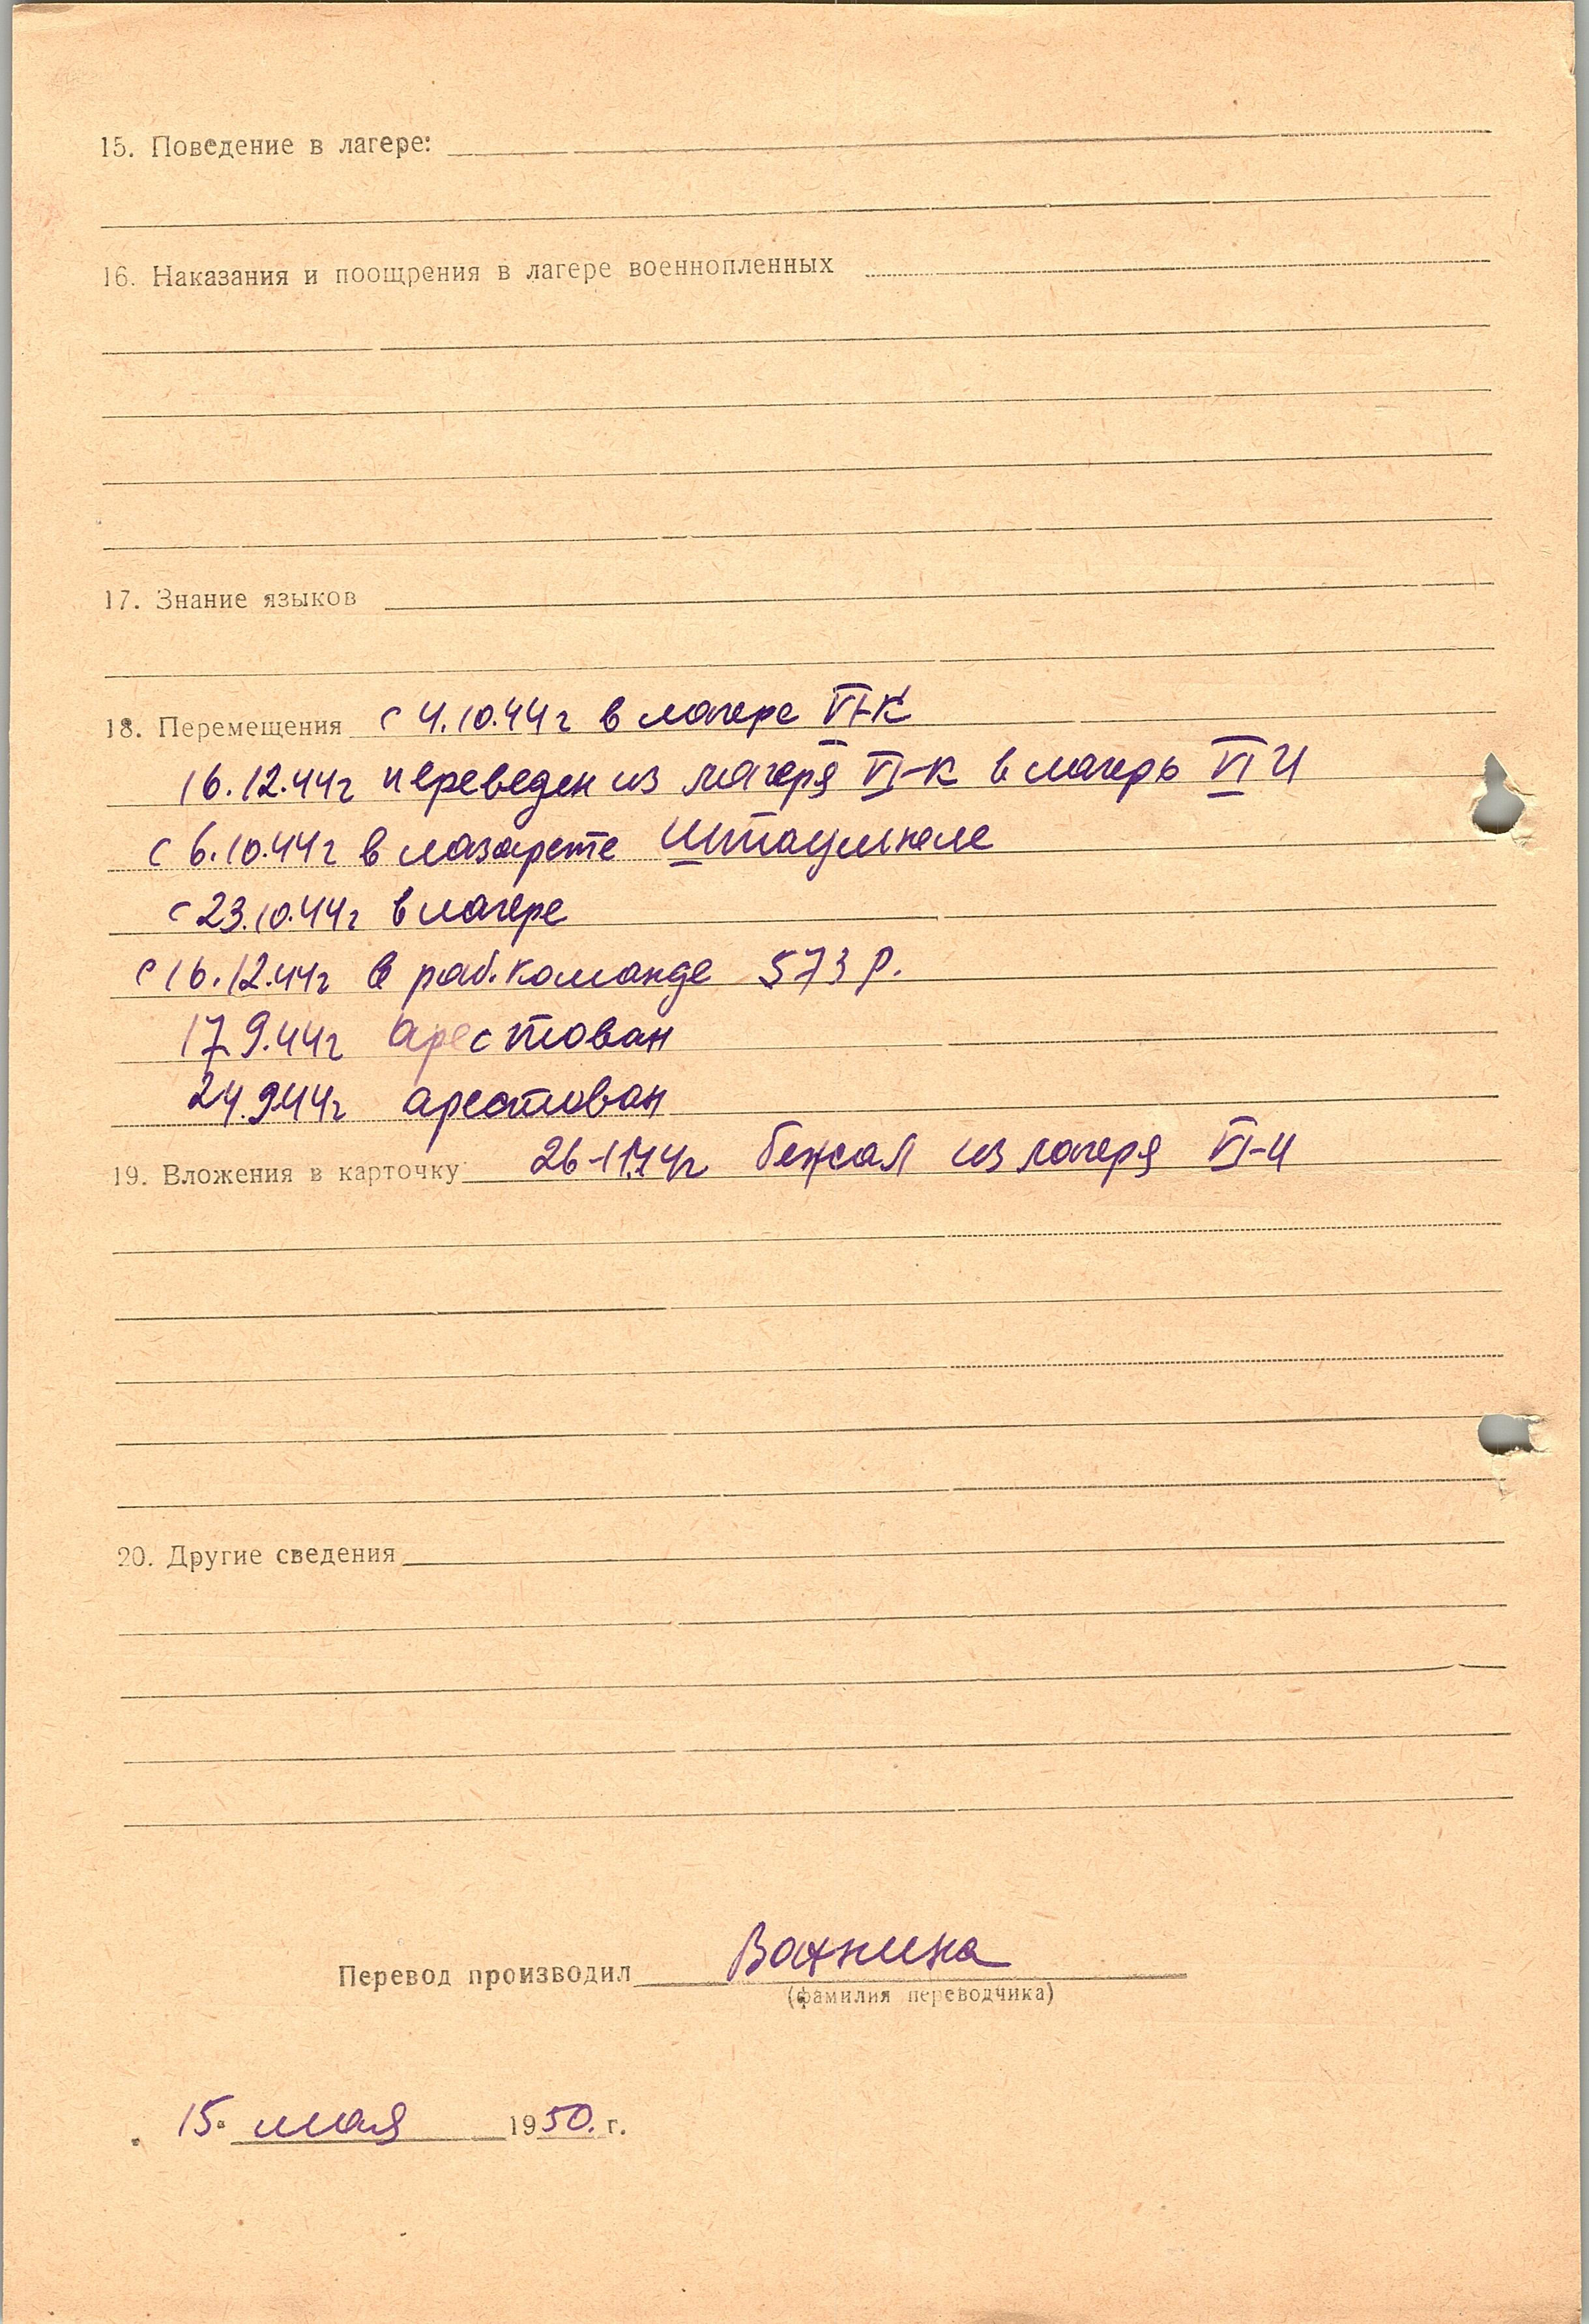 15. Поведение в лагере:
16. Наказания и поощрения в лагере военнопленных
17. Знание языков
18. Перемещения с 4.10.44г в лагере VI-К
16.12.44г переведен из лагеря VI-К в лагерь VI
с 6.10.44г в лазарете
с 23.10.44г в лагере
с 16.12.44г в раб. команде 573 Р.
17.9.44г арестован
24.9.44г арестован
19. Вложения в карточку бежал из лагеря
20. Другие сведения
Перевод производил
(фамилия переводчика)
15. мая 1950. г.